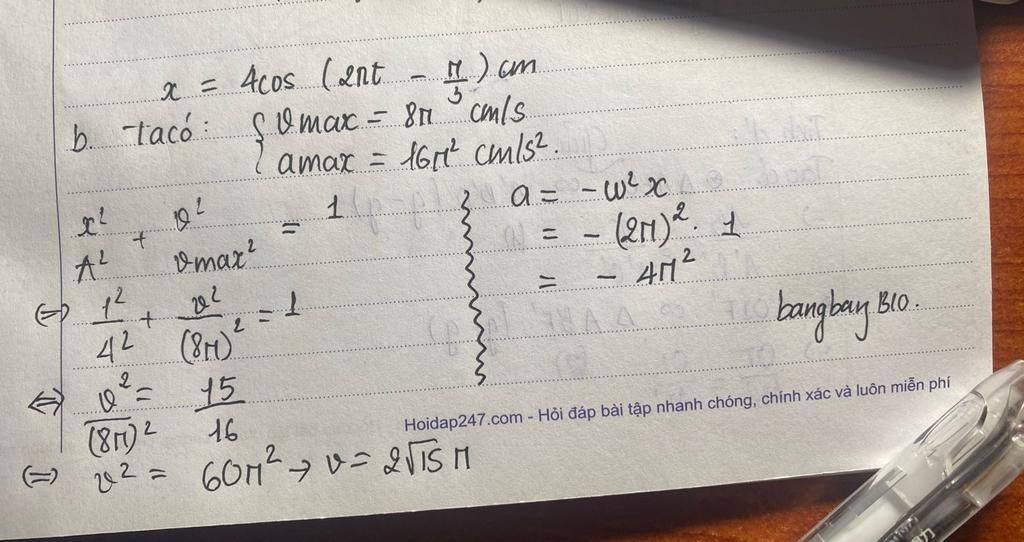 x = 4cos (2πt - π/3) cm
b. Tacó: { vmax = 8π cm/s
amax = 16π² cm/s².
x²/A² + v²/vmax² = 1
⇔ 1²/4² + v²/(8π)² = 1
⇔ v²/(8π)² = 15/16
⇔ v² = 60π² → v = 2√15 π
a = -ω²x
= - (2π)². 1
= - 4π²
bangbay B10.
Hoidap247.com - Hỏi đáp bài tập nhanh chóng, chính xác và luôn miễn phí